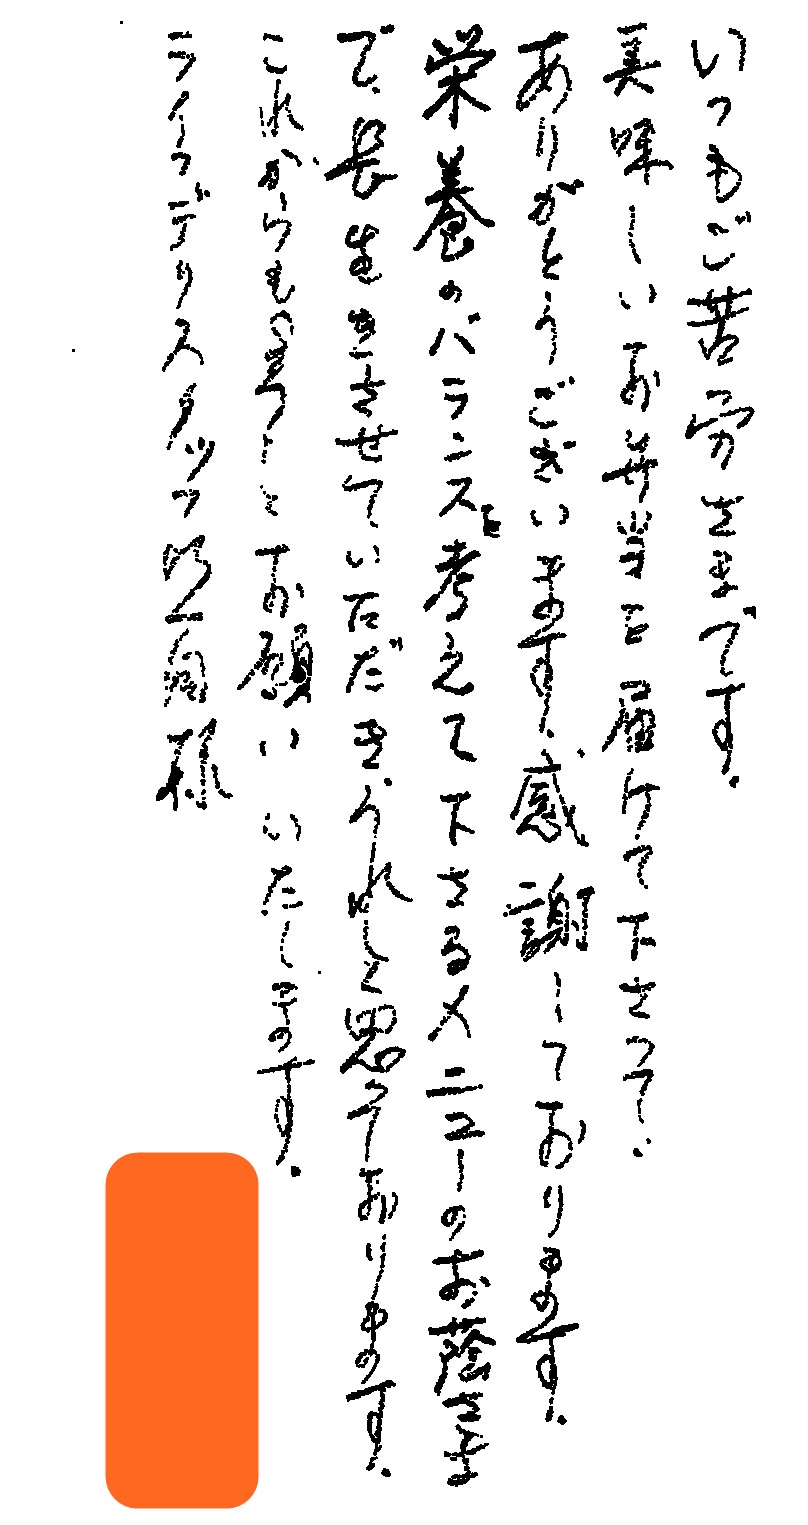 いつもご苦労さまです。
美味しいお弁当を届けて下さって、
ありがとうございます、感謝しております。
栄養のバランスを考えて下さるメニューのお蔭さま
で、長生きさせていただき、うれしと思っております。
これからもよろしくお願いいたします。
ライフデリスタッフ皆々様